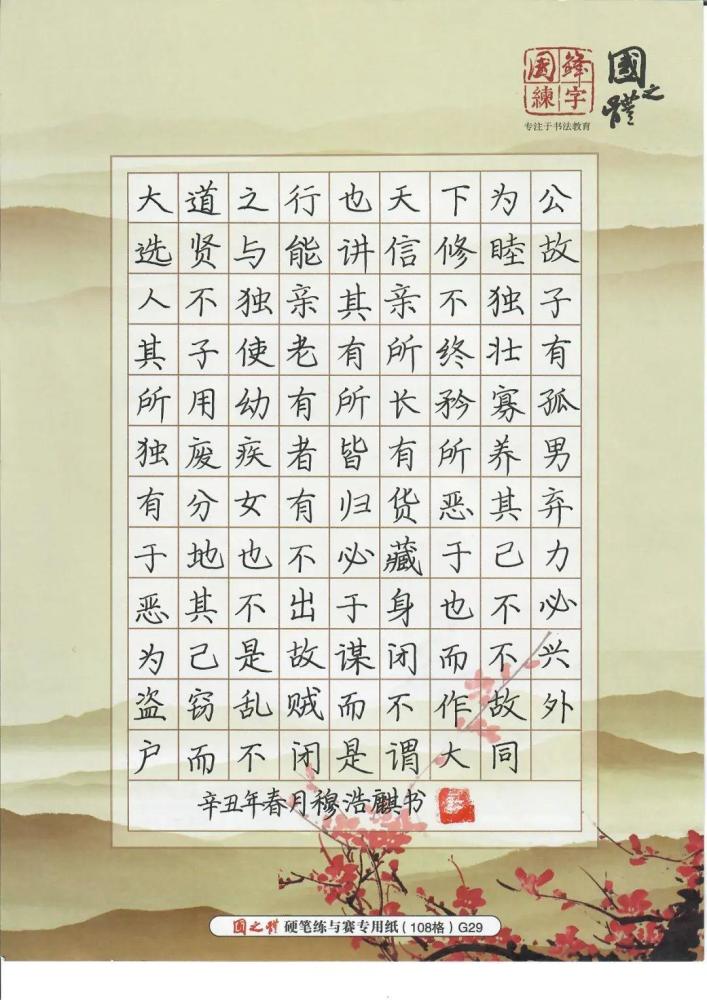 國之體
国鋒
練字
专注于书法教育
大道之行也天下为公
选贤与能讲信修睦故
人不独亲其亲不独子
其子使老有所终壮有
所用幼有所长矜寡孤
独废疾者皆有所养男
有分女有归货恶其弃
于地也不必藏于己力
恶其不出于身也不必
为己是故谋闭而不兴
盗窃乱贼而不作故外
户而不闭是谓大同
辛丑年春月穆浩麒书
國之體 硬笔练与赛专用纸(108格) G29